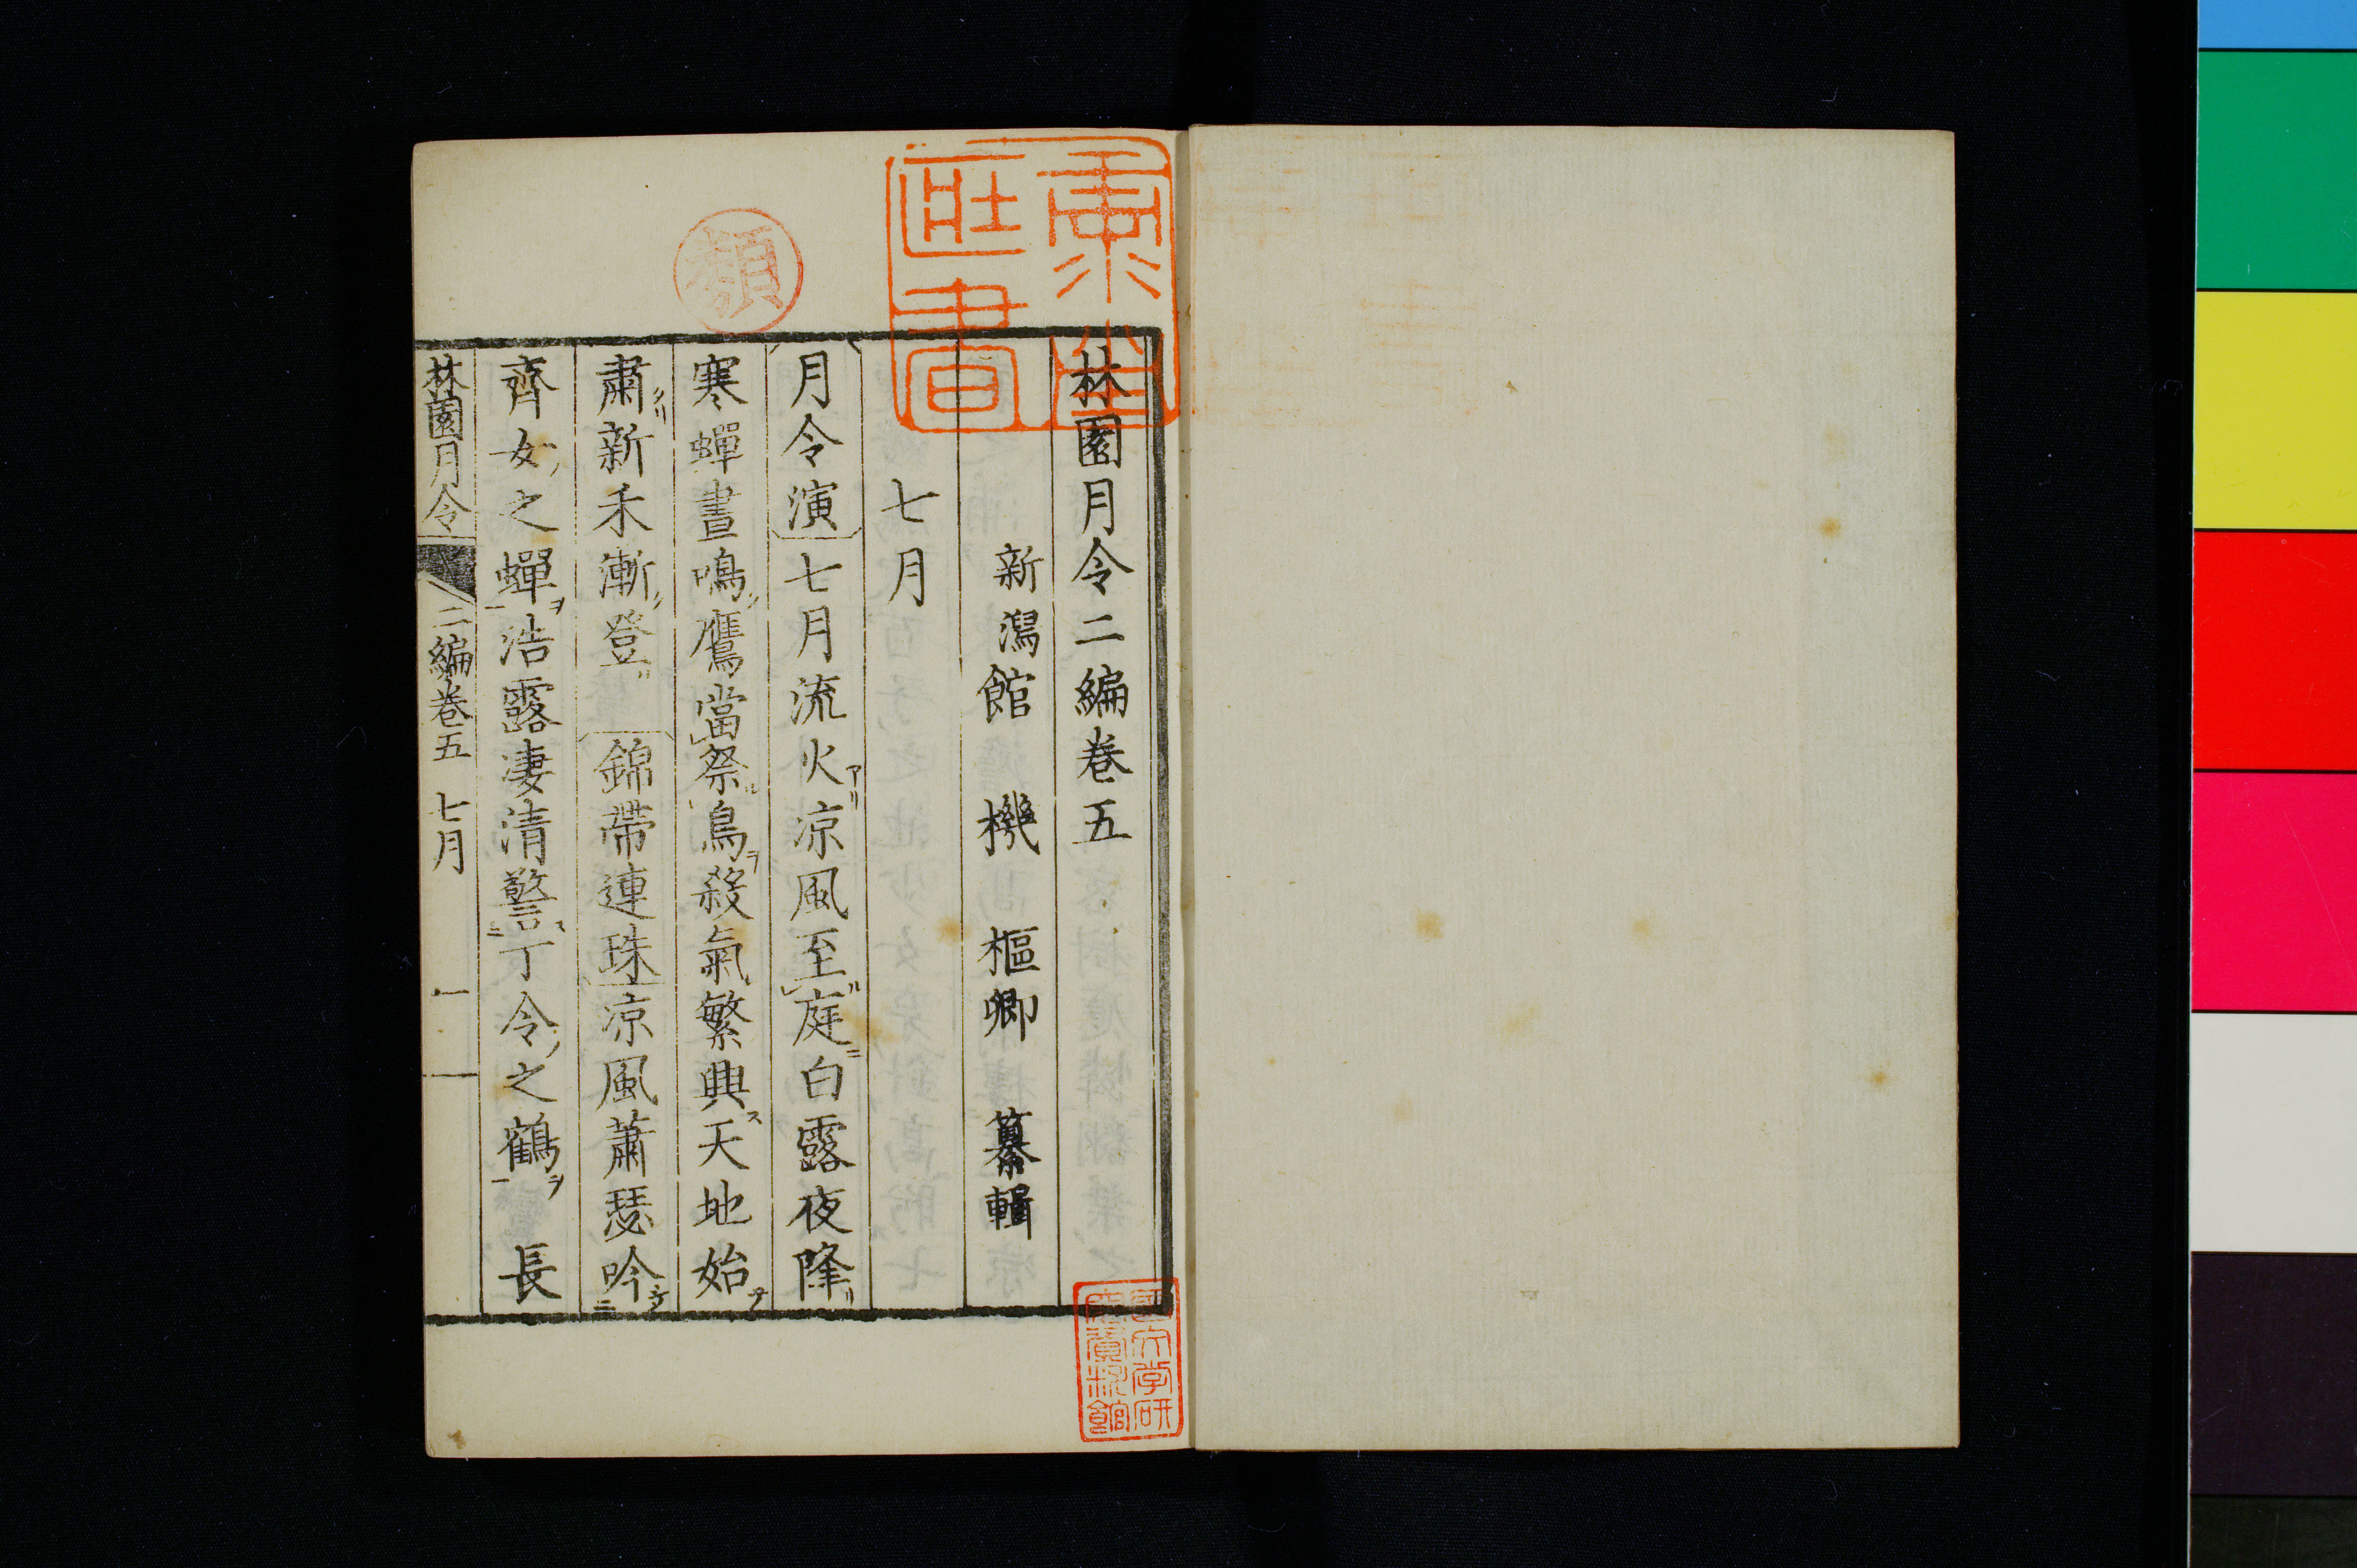 林園月令二編卷五
新潟館機樞卿纂輯
七月
月令演 七月流火凉風至庭白露夜降
寒蟬晝鳴鷹當祭鳥殺氣繁興天地始
肅新禾漸登 錦帶連珠 凉風蕭瑟吟
齊女之蟬浩露凄清警丁令之鶴 長
林園月令 二編卷五 七月 一
類
國文学研究資料館